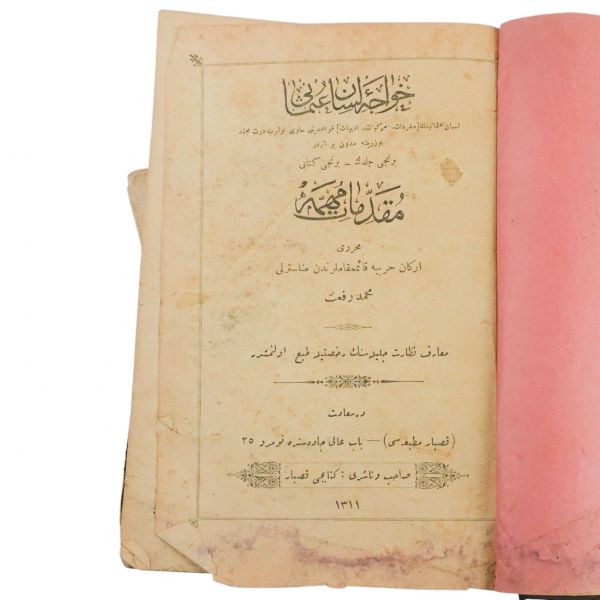 خواجهٔ لسان عثمانی
لسان عثمانینك [مفردات، مركبات، ادبیات] قواعدینی حاوی اولەرق درت مجلد
اوزرینه مدون بر اثردر
برنجی جلدك – برنجی كتابی
مقدّمات مهمّه
محرری
اركان حربیه قائممقاملرندن مناسترلی
محمد رفعت
معارف نظارت جلیله‌سنك رخصتیله طبع اولنمشدر
درسعادت
(قصبار مطبعه‌سی) — باب عالی جاده‌سنده نومرو ٢٥
صاحب و ناشری : كتابجی قصبار
١٣١١